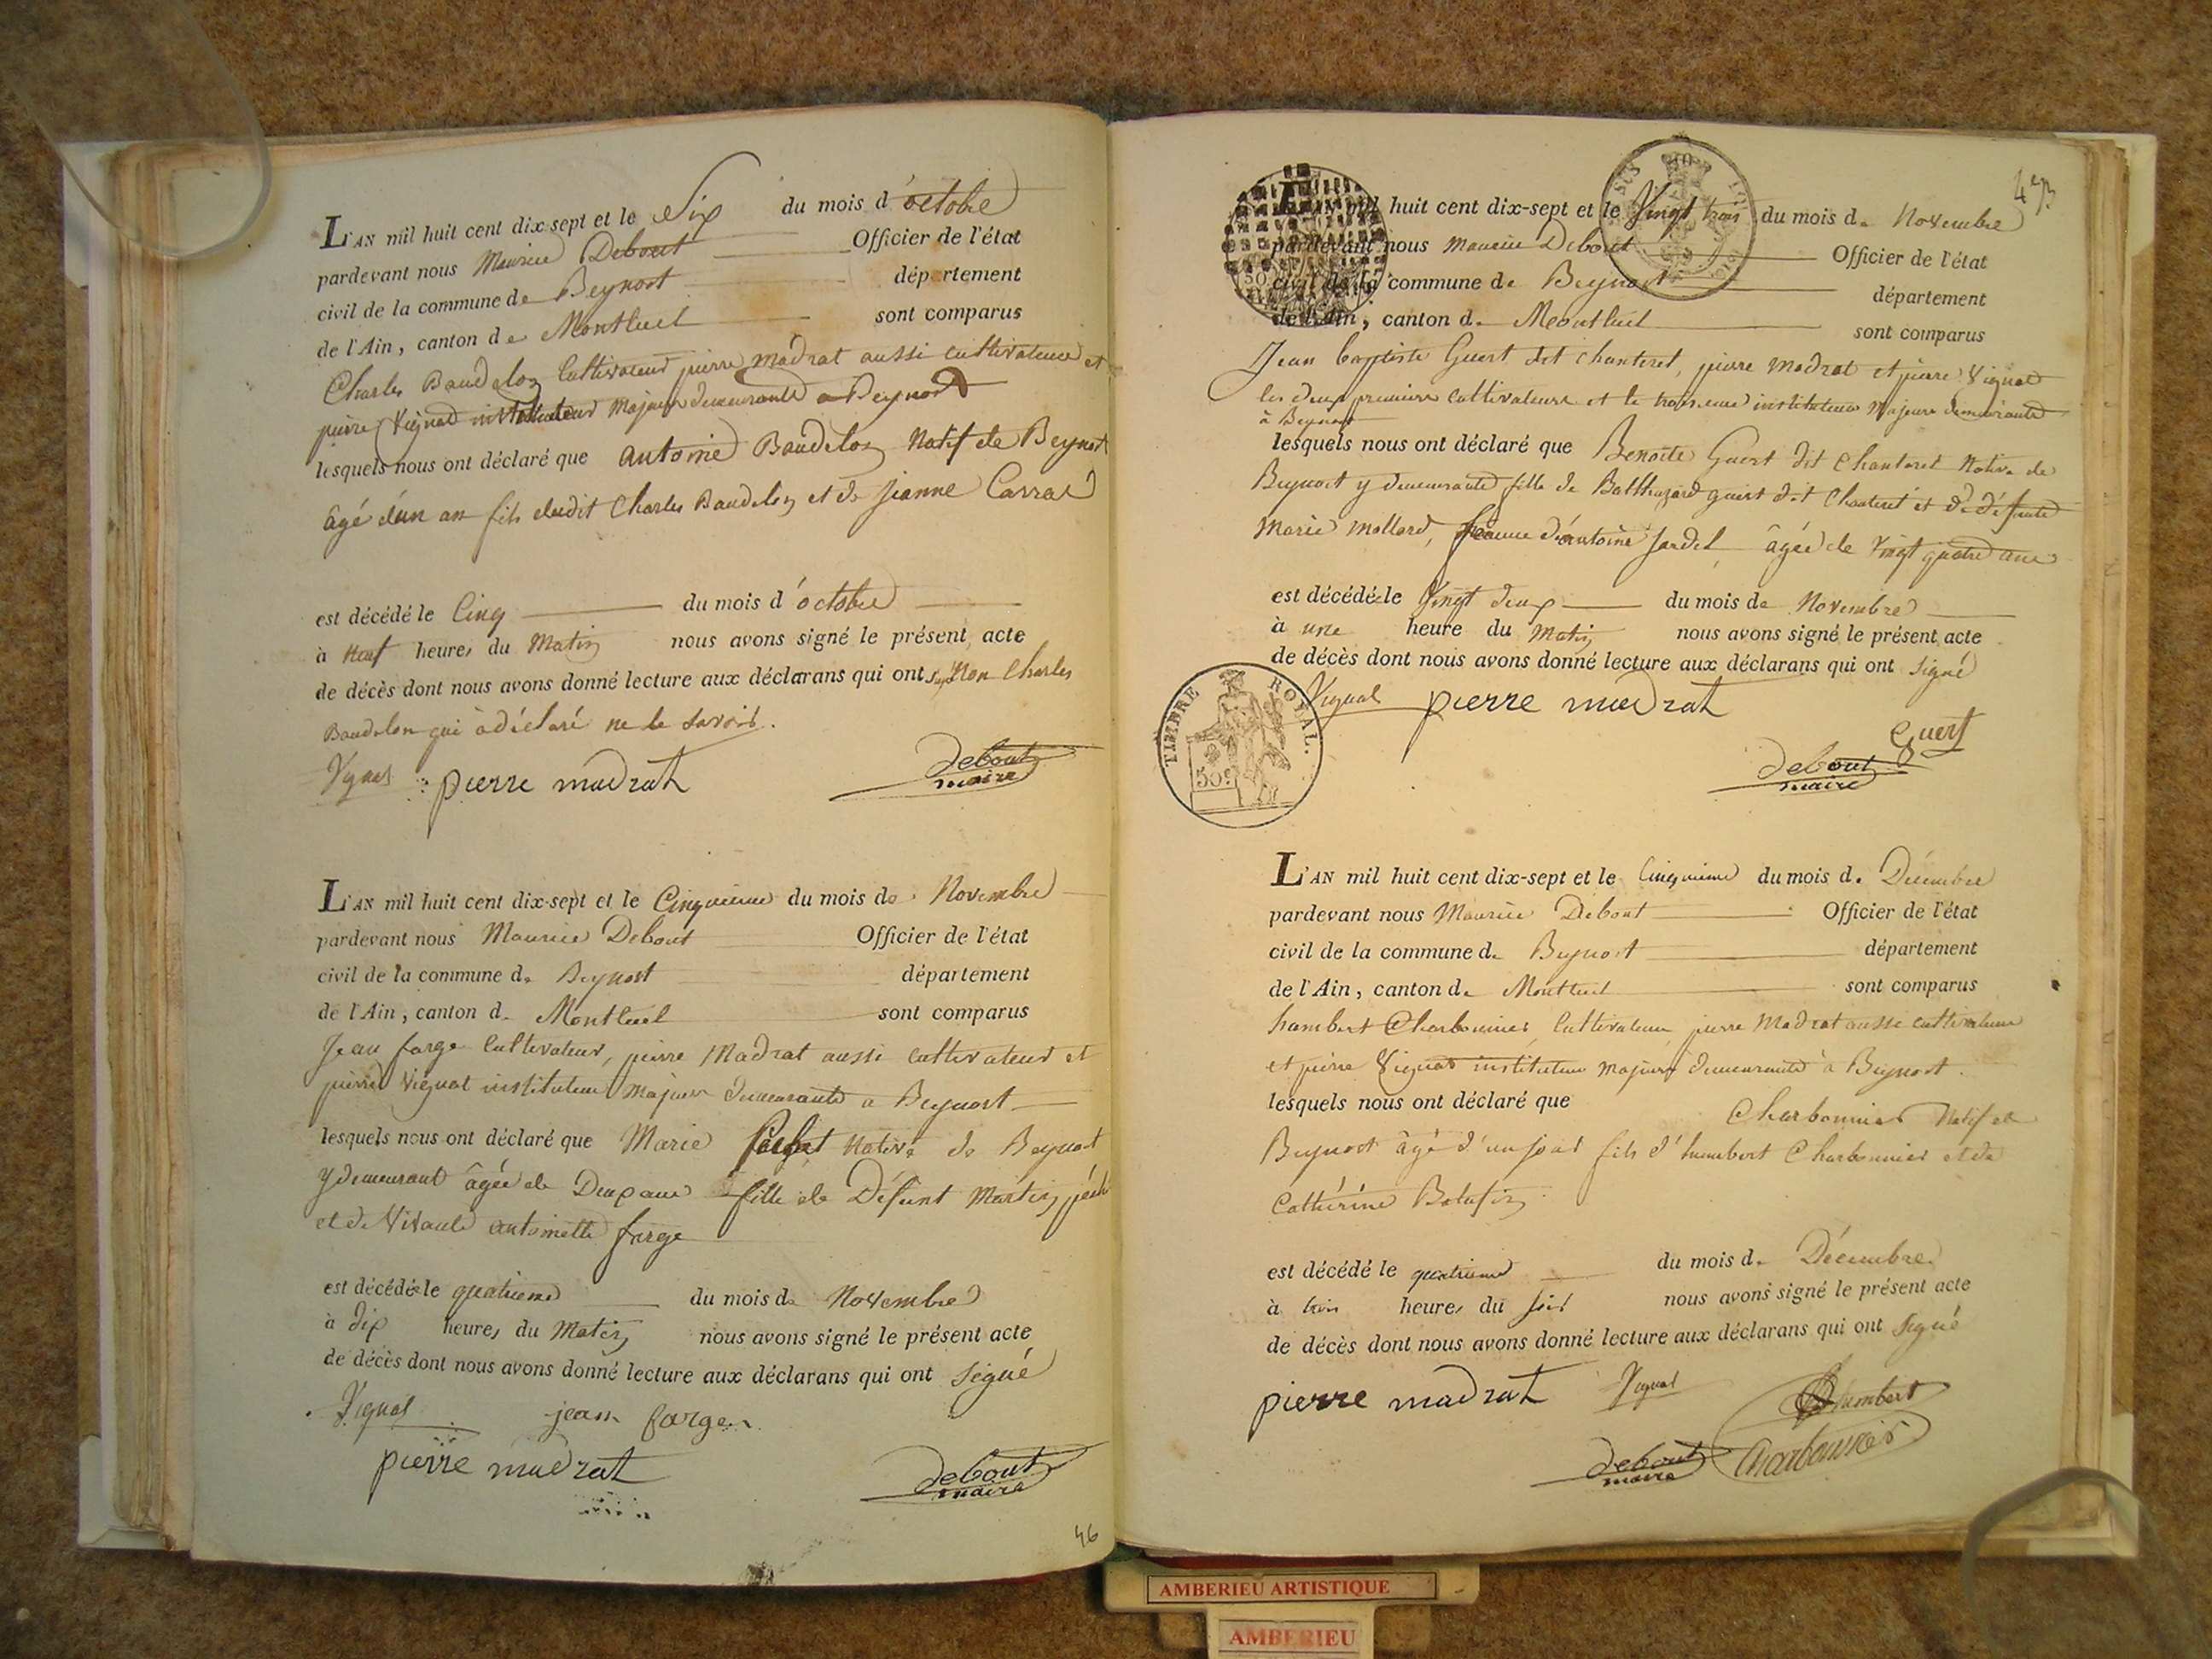 L'AN mil huit cent dix-sept et le Six du mois d'octobre
pardevant nous Maurice Debout Officier de l'état
civil de la commune de Beynost département
de l'Ain, canton de Montluel sont comparus
Charles Baudeloz Cultivateur pierre madrat aussi cultivateur et
pierre Vignat instituteur majeurs demeurants a Beynost
lesquels nous ont déclaré que antoine Baudeloz Natif de Beynost
âgé d'un an fils dudit Charles Baudeloz et de Jeanne Carral
est décédé le Cinq du mois d'octobre
à Neuf heures du Matin nous avons signé le présent acte
de décès dont nous avons donné lecture aux déclarans qui ont signé Non Charles
Baudelon qui à déclaré ne le savoir.
Vignat pierre madrat debout
maire
L'AN mil huit cent dix-sept et le Cinquieme du mois de Novembre
pardevant nous Maurice Debout Officier de l'état
civil de la commune de Beynost département
de l'Ain, canton de Montluel sont comparus
Jean farge Cultivateur, pierre Madrat aussi cultivateur et
pierre Vignat instituteur majeurs demeurants a Beynost
lesquels nous ont déclaré que Marie Native de Beynost
y demeurant âgée de Deux ans fille de Défunt Martin
et de Vivante antoinette farge
est décédée le quatrieme du mois de Novembre
à dix heures du Matin nous avons signé le présent acte
de décès dont nous avons donné lecture aux déclarans qui ont signé
Vignat jean farge
pierre madrat debout
maire
46
L'AN mil huit cent dix-sept et le Vingt trois du mois de Novembre
pardevant nous Maurice Debout Officier de l'état
civil de la commune de Beynost département
de l'Ain, canton de Montluel sont comparus
Jean baptiste Guert dit chanteret, pierre madrat et pierre Vignat
les deux premiers cultivateurs et le troisieme instituteur Majeurs demeurants
à Beynost
lesquels nous ont déclaré que Benoite Guert dit Chanteret Native de
Beynost y demeurante fille de Balthazard guert dit Chanteret et de défunte
Marie Mollard, femme d'antoine Jardel âgée de Vingt quatre ans
est décédée le Vingt deux du mois de Novembre
à une heure du Matin nous avons signé le présent acte
de décès dont nous avons donné lecture aux déclarans qui ont signé
TIMBRE ROYAL.
50c
Vignat pierre madrat
Guert
debout
maire
L'AN mil huit cent dix-sept et le Cinquieme du mois de Décembre
pardevant nous Maurice Debout Officier de l'état
civil de la commune de Beynost département
de l'Ain, canton de Montluel sont comparus
humbert Charbonnier Cultivateur pierre Madrat aussi cultivateur
et pierre Vignat instituteur majeurs demeurants à Beynost.
lesquels nous ont déclaré que Charbonnier Natif de
Beynost âgé d'un jour fils d'humbert Charbonnier et de
Cathérine
est décédé le quatrieme du mois de Décembre
à trois heures du soir nous avons signé le présent acte
de décès dont nous avons donné lecture aux déclarans qui ont signé
pierre madrat Vignat humbert
debout Charbonnier
maire
AMBERIEU ARTISTIQUE
AMBERIEU